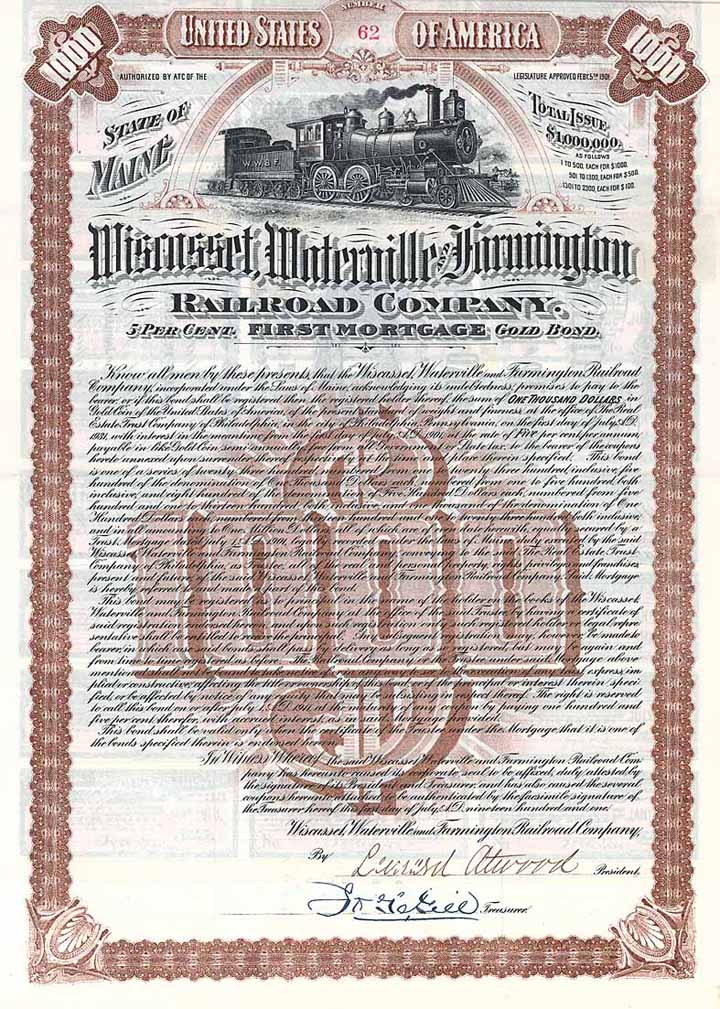 1000
NUMBER
1000
UNITED STATES 62 OF AMERICA
AUTHORIZED BY ATC OF THE
LEGISLATURE APPROVED FEB: 5TH 1901
STATE OF
MAINE
TOTAL ISSUE
$1,000,000.
AS FOLLOWS
1 TO 500, EACH FOR $1000.
501 TO 1300, EACH FOR $500.
1301 TO 2300, EACH FOR $100.
W.W.& F.
Wiscasset, Waterville and Farmington
RAILROAD COMPANY.
5 PER CENT. FIRST MORTGAGE GOLD BOND.
Know all men by these presents, that the Wiscasset, Waterville and Farmington Railroad
Company, incorporated under the Laws of Maine, acknowledging its indebtedness, promises to pay to the
bearer, or if this bond shall be registered then the registered holder thereof, the sum of ONE THOUSAND DOLLARS in
Gold Coin of the United States of America, of the present standard of weight and fineness, at the office of The Real
Estate Trust Company of Philadelphia, in the city of Philadelphia, Pennsylvania, on the first day of July, A.D.
1931, with interest in the meantime from the first day of July, A.D. 1901, at the rate of FIVE per cent per annum,
payable in like Gold Coin semi-annually, free from all Government or State tax, to the bearer of the coupons
hereto annexed upon surrender thereof at the office and at the times therein specified. This bond
is one of a series of twenty three hundred, numbered from one to twenty three hundred, inclusive, five
hundred of the denomination of One Thousand Dollars each, numbered from one to five hundred, both
inclusive, and eight hundred of the denomination of Five Hundred Dollars each, numbered from five
hundred and one to thirteen hundred, both inclusive, and one thousand of the denomination of One
Hundred Dollars each, numbered from thirteen hundred and one to twenty three hundred, both inclusive,
and in all amounting to One Million Dollars, all of which are equally, secured by a
Trust Mortgage dated July 1st A.D. 1901, executed under the Laws of Maine duly executed by the said
Wiscasset, Waterville and Farmington Railroad Company, conveying to the said The Real Estate Trust
Company of Philadelphia, as Trustee, all the real and personal property, rights, privileges and franchises,
present and future, of the said Wiscasset, Waterville and Farmington Railroad Company, said Mortgage
is hereby referred to and made part of this bond.
This bond may be registered as to principal in the name of the holder on the books of the Wiscasset,
Waterville and Farmington Railroad Company at the office of the said Trustee, having a certificate of
said registration endorsed hereon, and after such registration only such registered holder or legal repre-
sentative shall be entitled to receive the principal. The last designated registration may, however, be made to
bearer, in which case the bonds shall pass by delivery as long as so registered, but may again and
from time to time be registered as before. The Railroad Company and the Trustee in the said Mortgage above
mentioned shall not be bound to take notice of any trust, express, im-
plied or constructive, affecting the ownership of this bond, nor of any equity, or interest therein speci-
fied, or be affected by notice of any equity that may be outstanding in respect thereof. The right is reserved
to call this bond on or after July 1st, A.D. 1911, at the maturity of any coupon by paying one hundred and
five per cent therefor, with accrued interest, as in said Mortgage provided.
This bond shall be valid only when the certificate of the Trustee under the Mortgage, that it is one of
the bonds specified therein is endorsed hereon.
In Witness Whereof, the said Wiscasset, Waterville and Farmington Railroad Com-
pany has hereunto caused its corporate seal to be affixed, duly attested by
the signature of its President and Treasurer, and has also caused the several
coupons hereunto attached to be authenticated by the facsimile signature of
the Treasurer hereof this first day of July, A.D. nineteen hundred and one.
Wiscasset, Waterville and Farmington Railroad Company,
By Leonard Atwood President.
Treasurer.
$
1000
GOLD